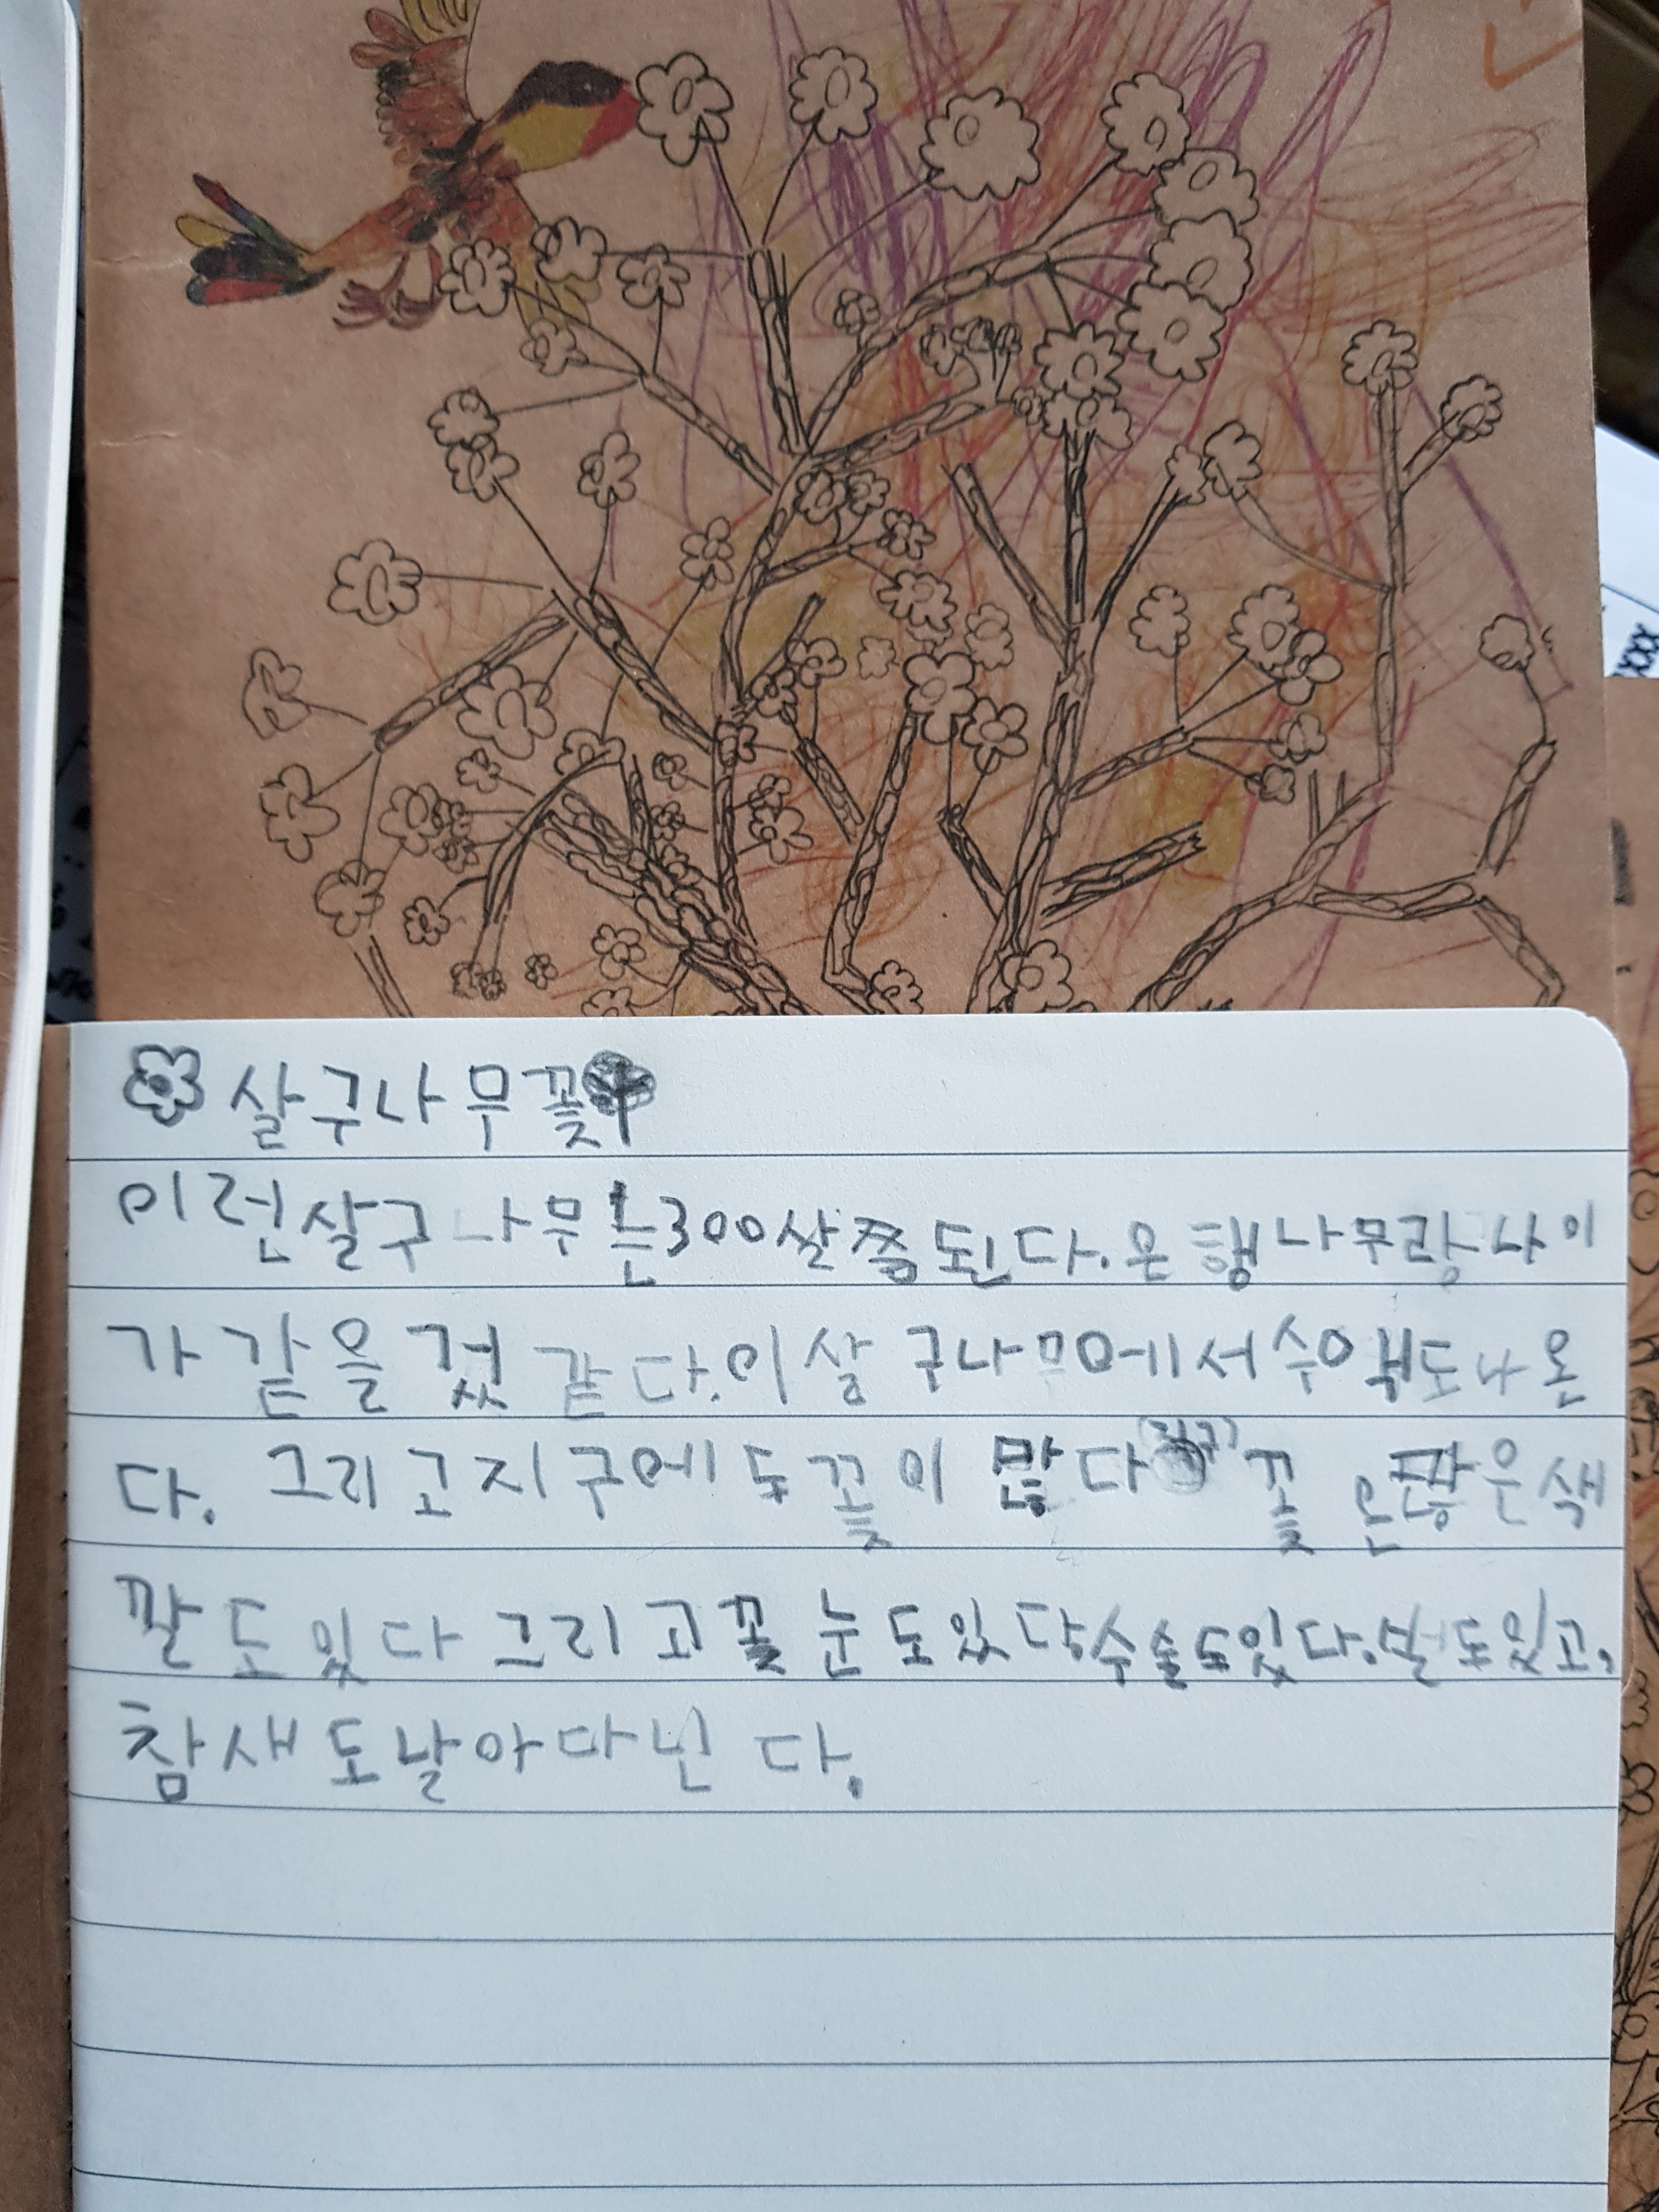 살구나무꽃
이런살구나무는300살쯤된다.은행나무랑나이
가같을겄같다.이살구나무에서수액도나온
다. 그리고지구에도꽃이많다(지구)꽃은많은색
깔도있다그리고꽃눈도있다.수술도있다.벌도있고,
참새도날아다닌다.
xxx